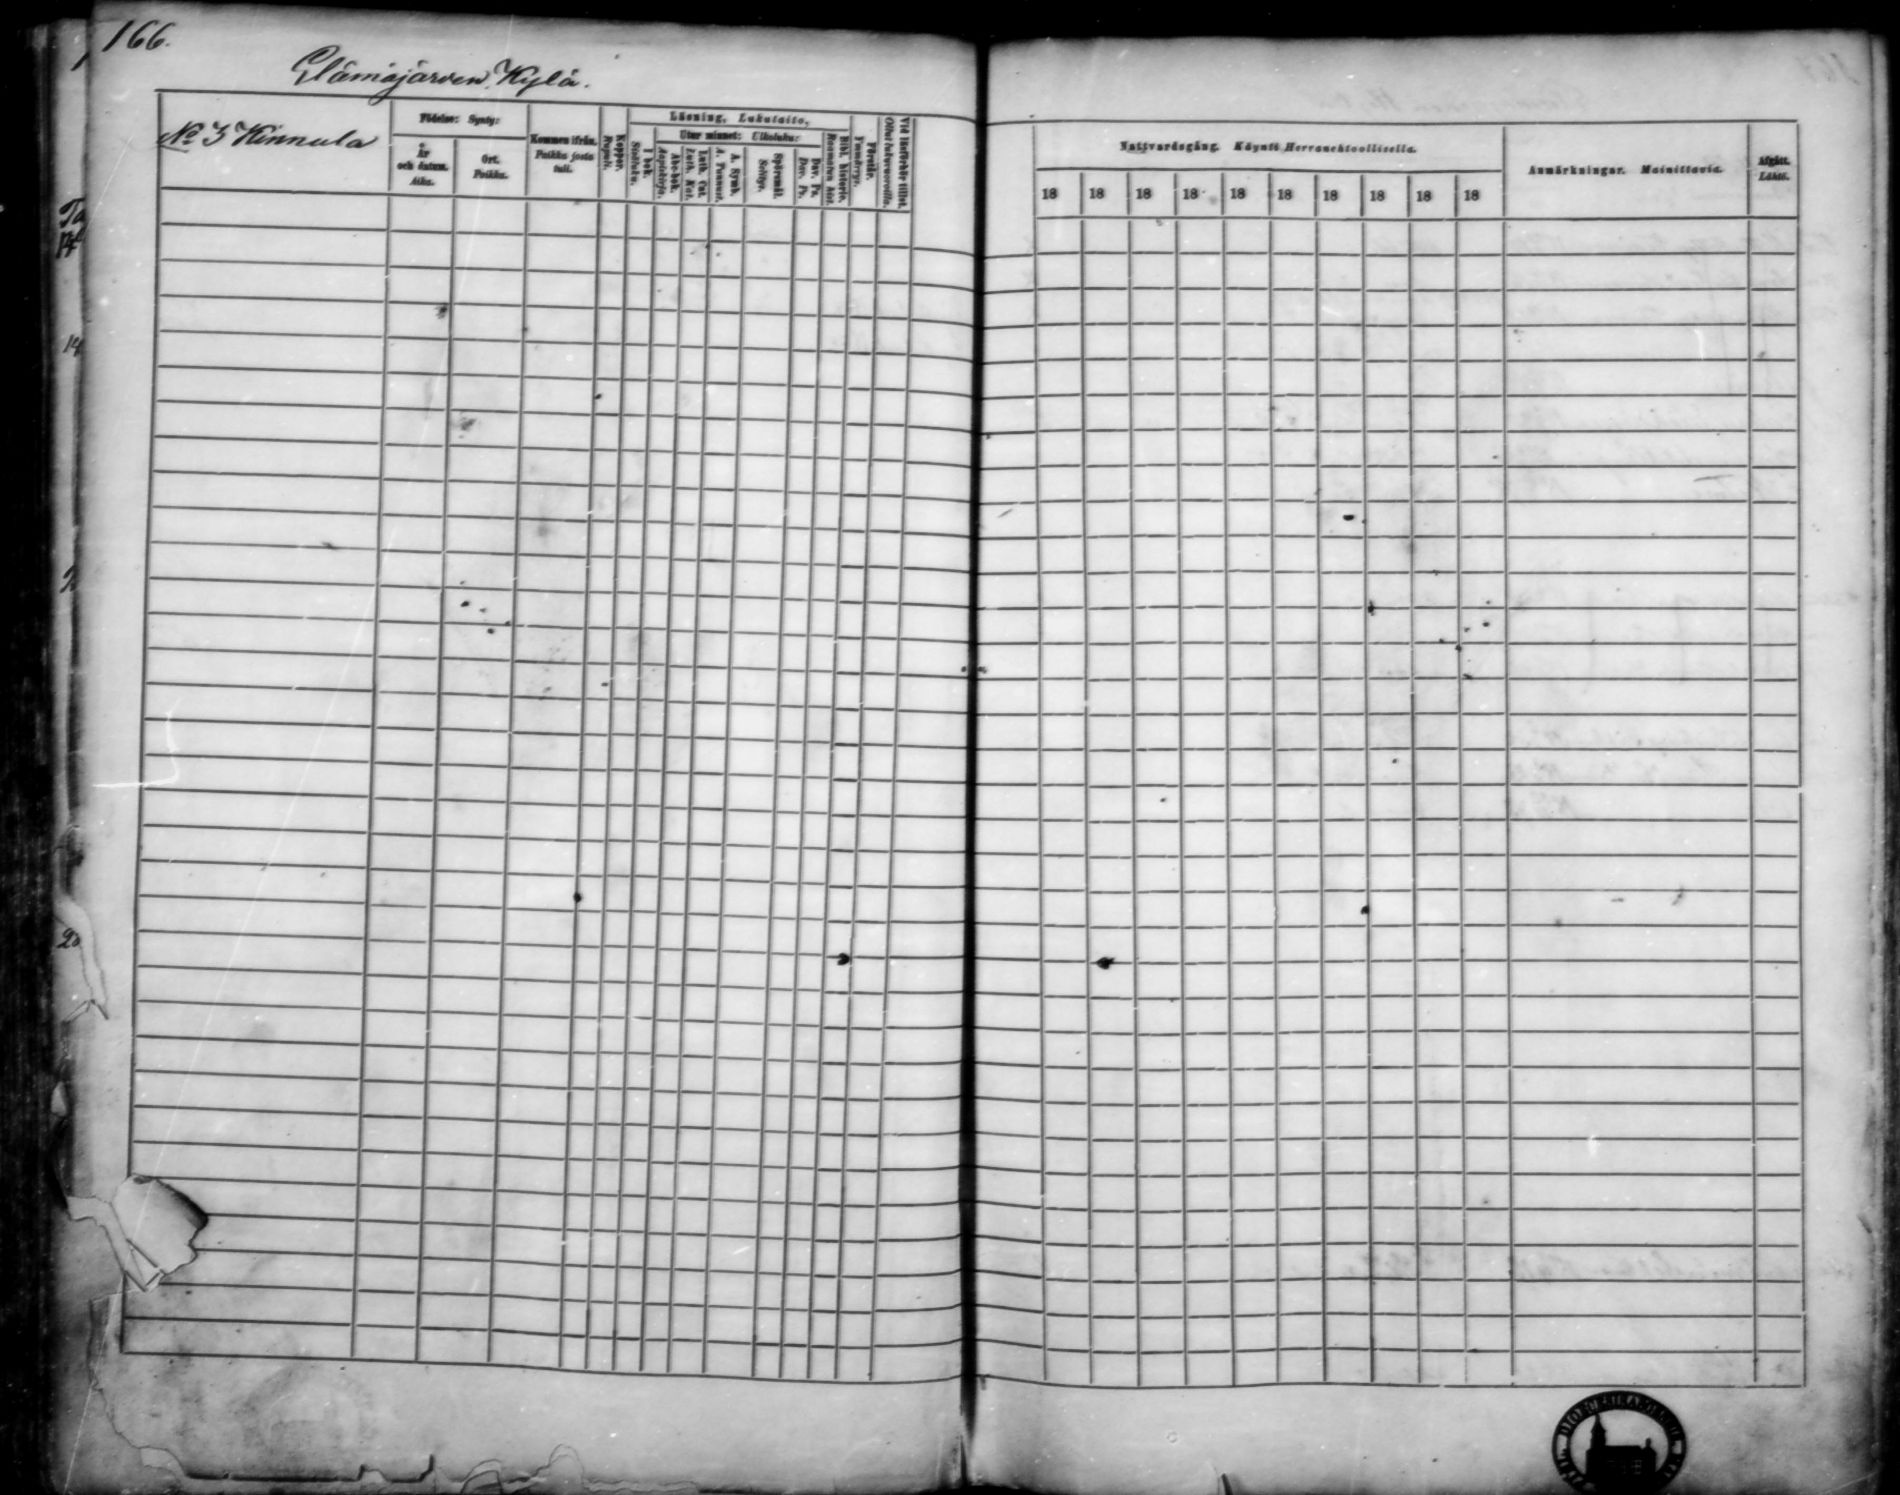 166.
Elämäjärven Kylä.
No 3 Kinnula
Födelse: Synty:
År och datum. Aika.
Ort. Paikka.
Kommen ifrån. Paikka josta tuli.
Koppor. Rupuli.
Läsning, Lukutaito,
I bok. Sisäluku.
Utur minnet: Ulkoluku:
Abc-bok. Aapiskirja.
Luth. Cat. Luth. Kat.
A. Symb. A. Tunnust.
Spörsmål. Selitys.
Dav. Ps. Dav. Ps.
Bibl. historie. Raamatun hist.
Förstår. Ymmärrys.
Vid läsförhör tillst. Ollut lukuvuoroilla.
Nattvardsgång. Käynti Herranehtoollisella.
18 18 18 18 18 18 18 18 18 18
Anmärkningar. Mainittavia.
Afgått. Lähtö.